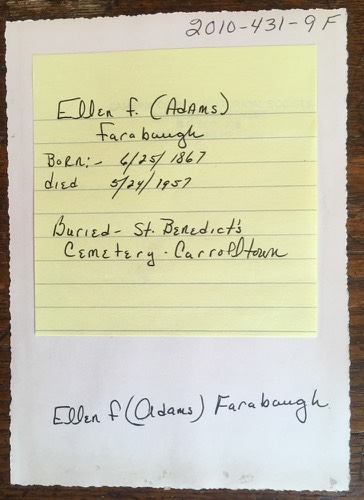 2010-431-9F
Ellen F. (Adams)
Farabaugh
Born:- 6/25/1867
died 5/24/1957
Buried- St. Benedict's
Cemetery - Carrolltown
Ellen F (Adams) Farabaugh